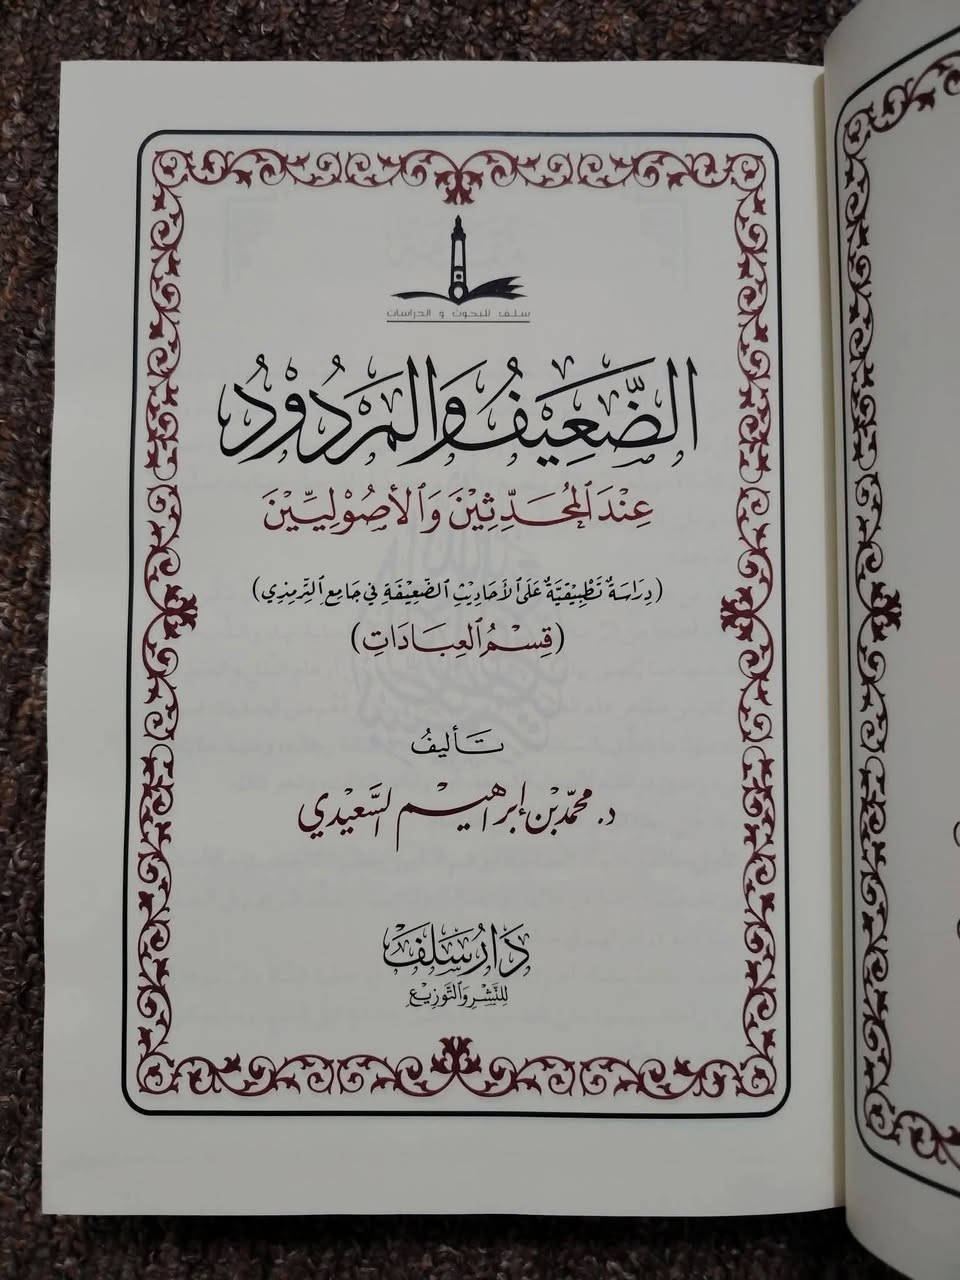 سلف للبحوث و الدراسات
الضَّعِيفُ وَالمَرْدُودُ
عِنْدَ المُحَدِّثِيْنَ وَالأُصُوْلِيِّيْنَ
(دِرَاسَةٌ تَطْبِيْقِيَّةٌ عَلَى الأَحَادِيْثِ الضَّعِيْفَةِ فِي جَامِعِ التِّرْمِذِي)
(قِسْمُ العِبَادَاتِ)
تَأليفُ
د. محمّد بْن إبراهيْم السَّعِيْدي
دَارُ سَلَفْ
لِلنَّشْرِ وَالتَّوْزِيْعِ